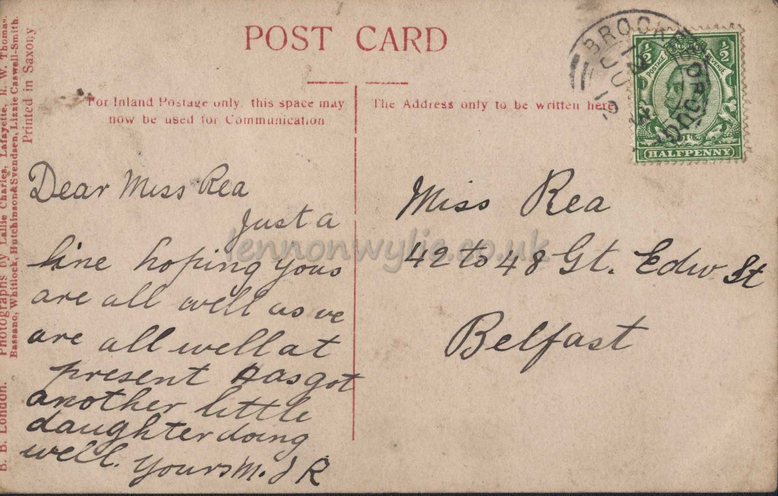 POST CARD
For Inland Postage only, this space may
now be used for Communication
The Address only to be written here
½ ½
POSTAGE
HALFPENNY
BROOKEBOROUGH
Dear Miss Rea
Just a
line hoping yous
are all well as we
are all well at
present Has got
another little
daughter doing
well. Yours M. J R
Miss Rea
42 to 48 Gt. Edw St
Belfast
lennonwylie.co.uk
B. B. London. Photographs by Lallie Charles, Lafayette, R. W. Thomas,
Bassano, Whitlock, Hutchinson & Svendsen, Lizzie Caswell-Smith.
Printed in Saxony